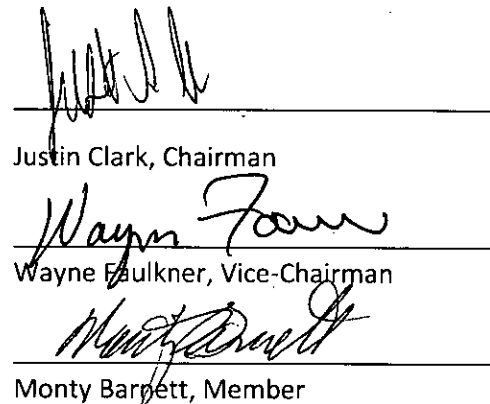 Justin Clark, Chairman
Wayne Faulkner, Vice-Chairman
Monty Barnett
Monty Barnett, Member